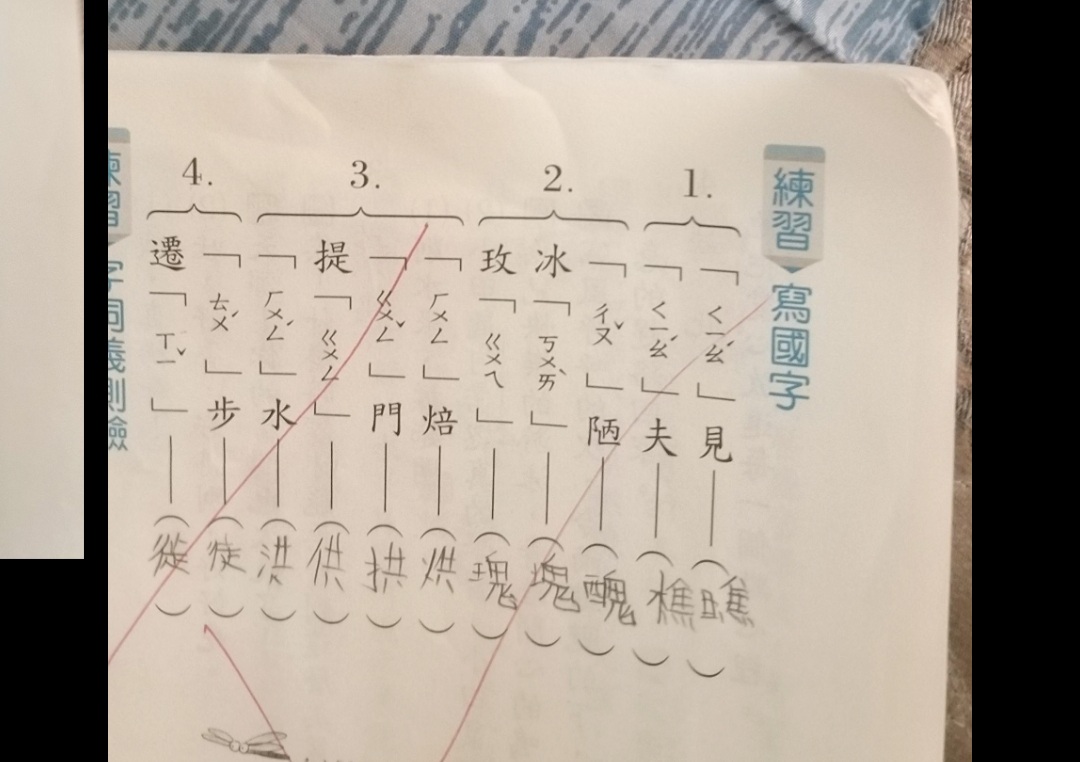 練習 寫國字
1.
「ㄑㄧㄠˊ」見——(瞧)
「ㄑㄧㄠˊ」夫——(樵)
2.
「ㄔㄡˇ」陋——(醜)
冰「ㄎㄨㄞˋ」——(塊)
玫「ㄍㄨㄟ」——(瑰)
3.
「ㄏㄨㄥ」焙——(烘)
「ㄍㄨㄥˇ」門——(拱)
提「ㄍㄨㄥ」——(供)
「ㄏㄨㄥˊ」水——(洪)
4.
「ㄊㄨˊ」步——(徒)
遷「ㄒㄧˇ」——(徙)
練習 字詞義測驗